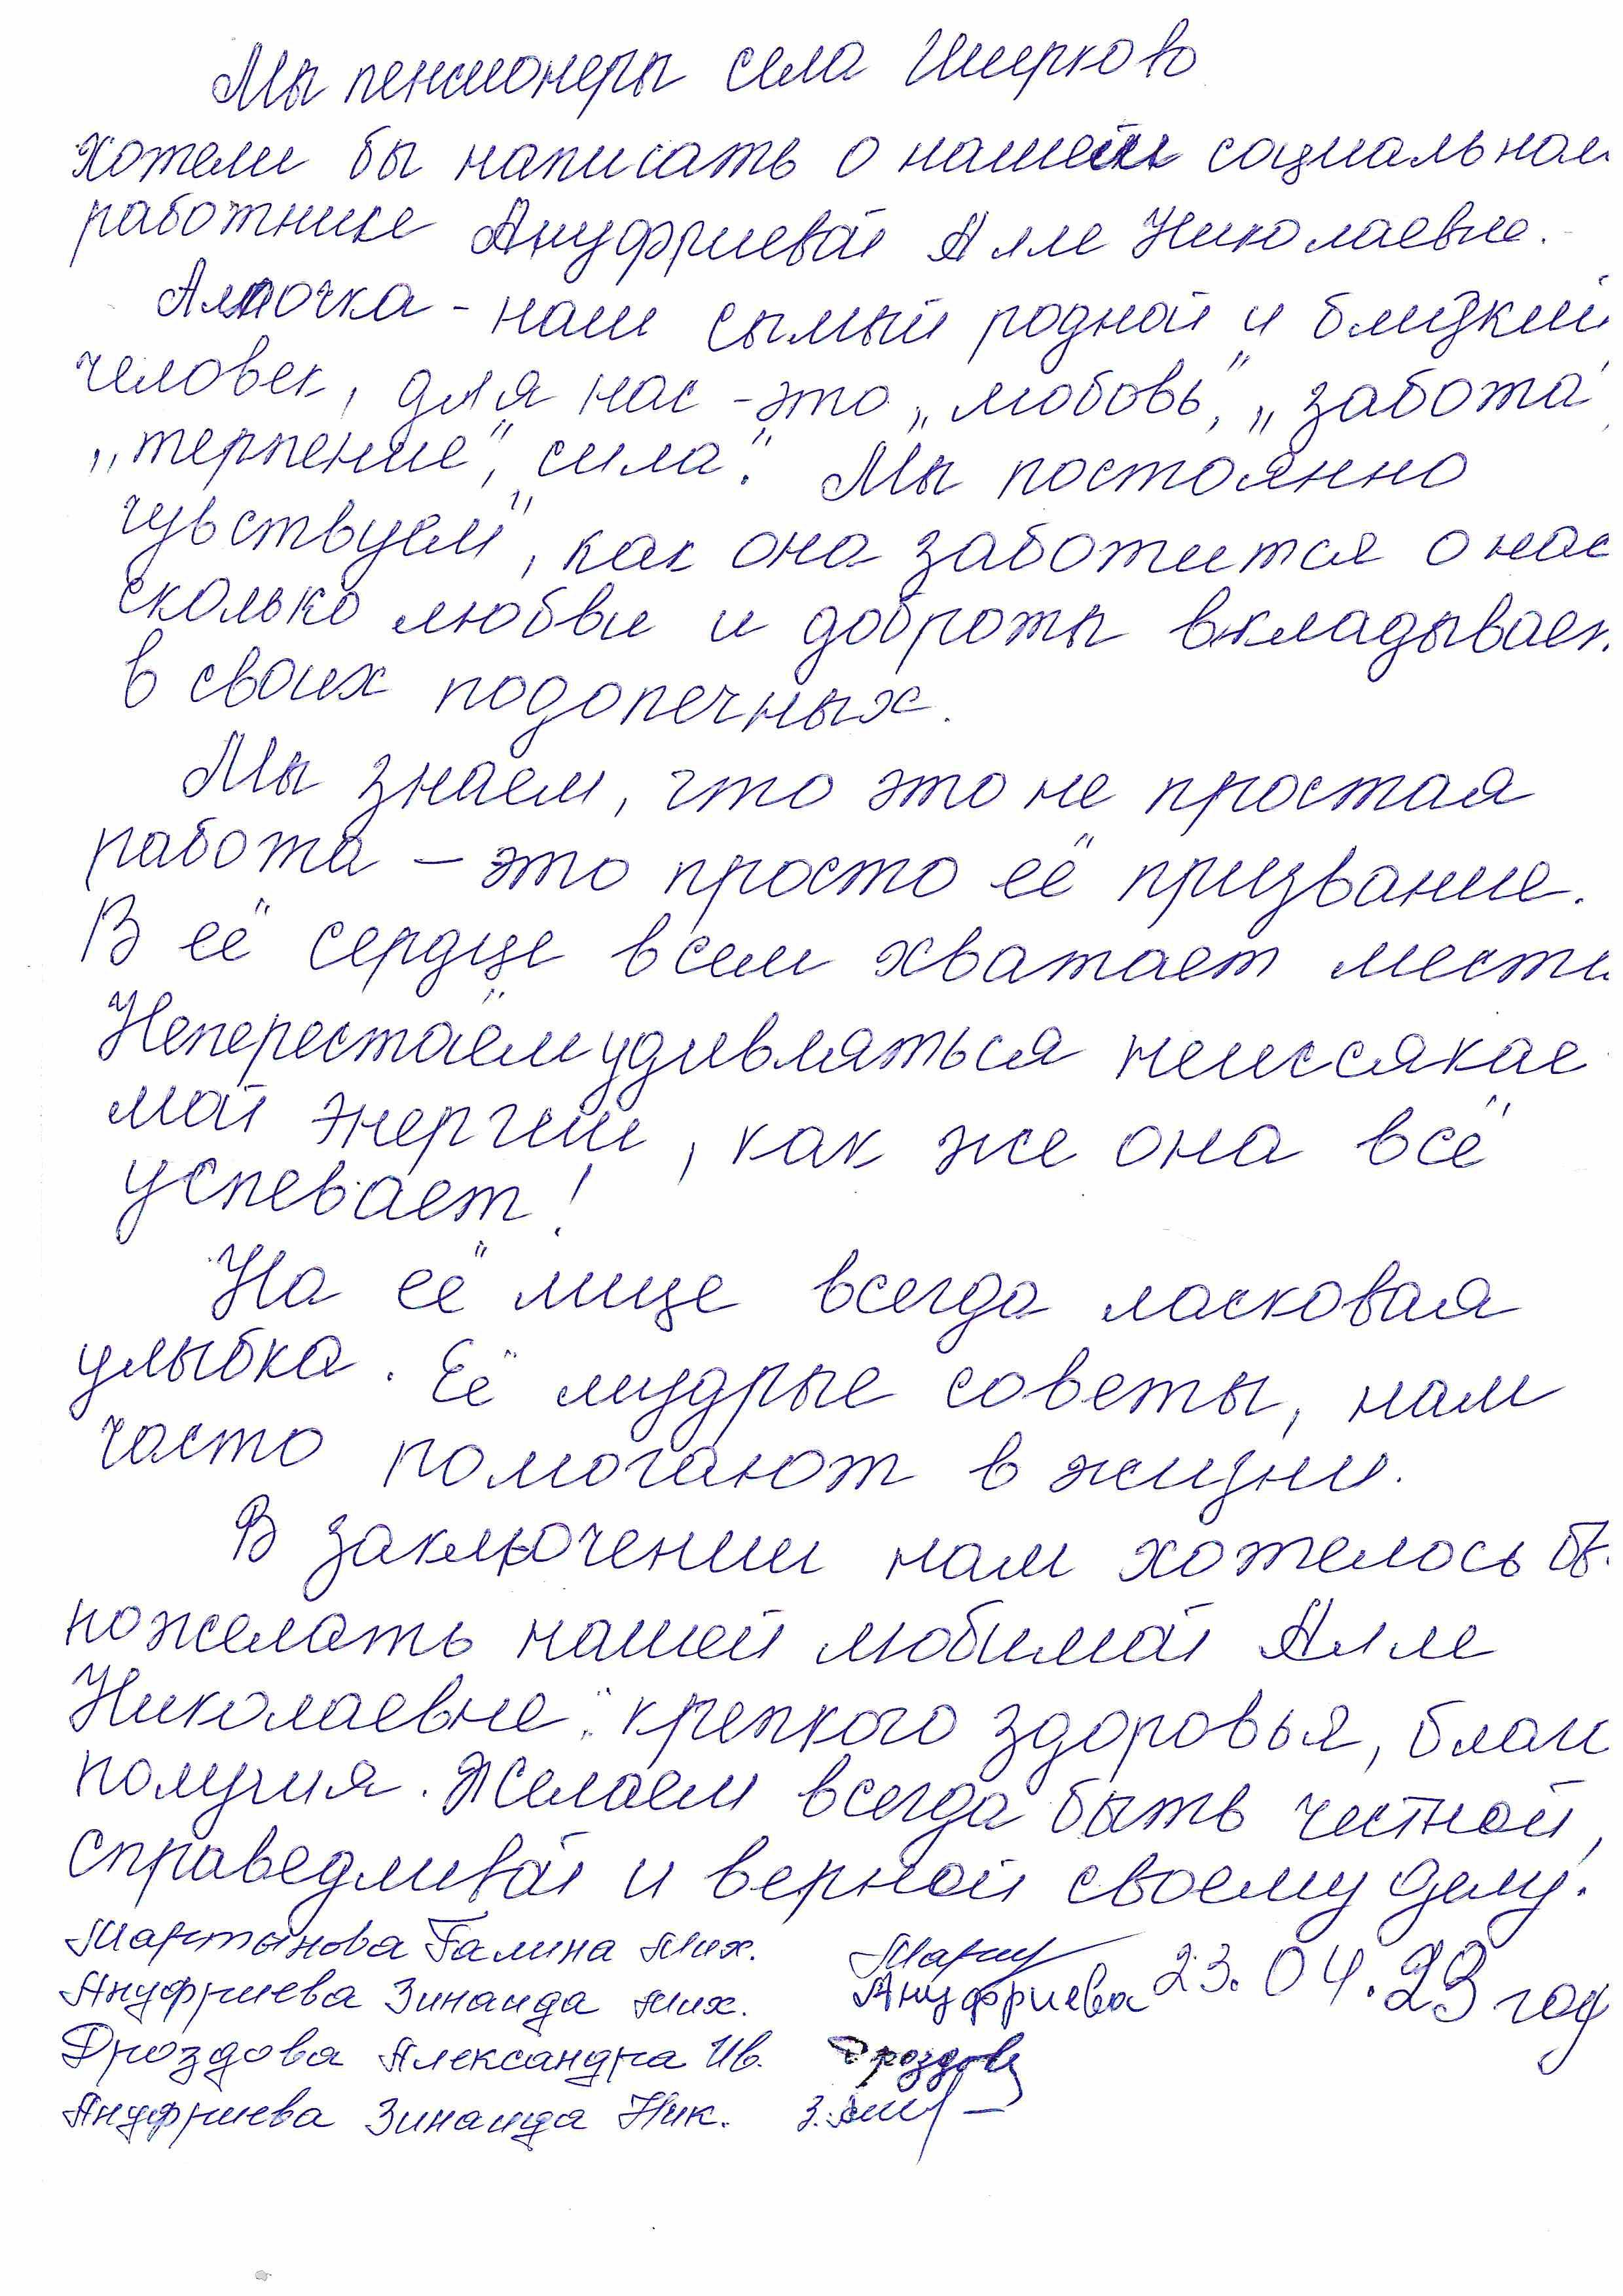 Мы пенсионеры села Ширково
хотели бы написать о нашем социальном
работнике Ануфриевой Алле Николаевне.
Аллочка - наш сымый родной и близкий
человек, для нас - это „любовь", „забота",
„терпение", „сила". Мы постоянно
чувствуем, как она заботится о нас
сколько любви и доброты вкладывает
в своих подопечных.
Мы знаем, что это не простая
работа – это просто её призвание.
В её сердце всем хватает места
Неперестаём удивляться неиссякае
мой энергии, как же она всё
успевает!
На её лице всегда ласковая
улыбка. Её мудрые советы, нам
часто помогают в жизни.
В заключении нам хотелось бы
пожелать нашей любимой Алле
Николаевне: крепкого здоровья, благо
получия. Желаем всегда быть честной,
справедливой и верной своему делу!
Мартынова Галина Мих.
Ануфриева Зинаида Мих. Ануфриева 23.04.23 год
Дроздова Александра Ив. Дроздова
Ануфриева Зинаида Ник.